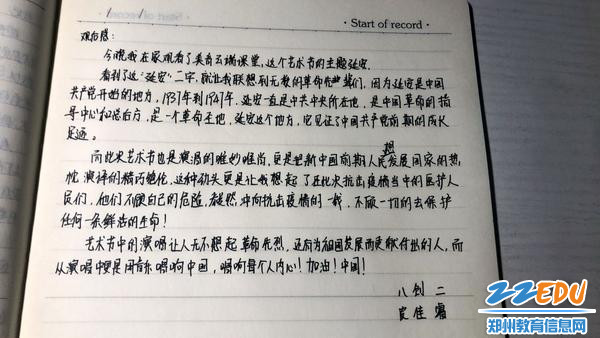 · Start of record ·
观后感:
今晚我在家观看了美育云端课堂,这个艺术节的主题延安。
看到了这"延安"二字,就让我联想到无数的革命先辈们,因为延安是中国
共产党开始的地方,1937年到1947年,延安一直是中共中央所在地,是中国革命的指
导中心和总后方,是一个革命圣地,延安这个地方,它见证了中国共产党前期的成长
足迹。
而此次艺术节也是演唱的唯妙唯肖,更是把新中国前期人民想发展国家的热
忱演译的精巧绝伦,这种劲头更是让我想起了在此次抗击疫情当中的医护人
员们,他们不顾自己的危险,毅然冲向抗击疫情的一线,不顾一切的去保护
任何一条鲜活的生命!
艺术节中的演唱让人无不想起革命先烈,还有为祖国发展而奉献付出的人,而
从演唱中更是用音乐唱响中国,唱响每个人内心!加油!中国!
八创二
22EDU
郑州教育信息网